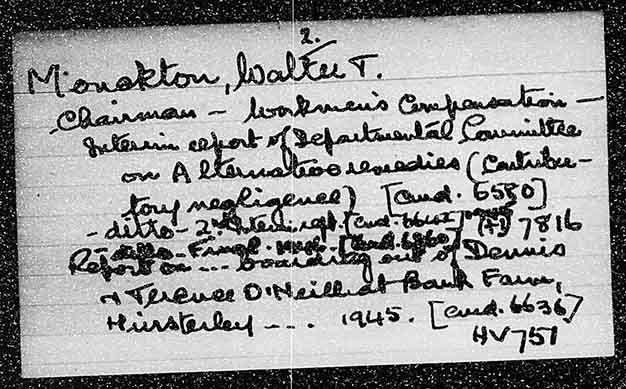 2.
Monckton, Walter T.
- Chairman - Workmen's Compensation -
Interim report of Departmental Committee
on Alternative remedies (Contribu-
tory negligence) [Cmd. 6580]
- ditto - 2nd Interim rept. [Cmd. 6642] HD 7816
- ditto - Final rept. [Cmd. 6860]
Report on ... boarding out of Dennis
+ Terence O'Neill at Bank Farm,
Minsterley ... 1945. [Cmd. 6636]
HV 751